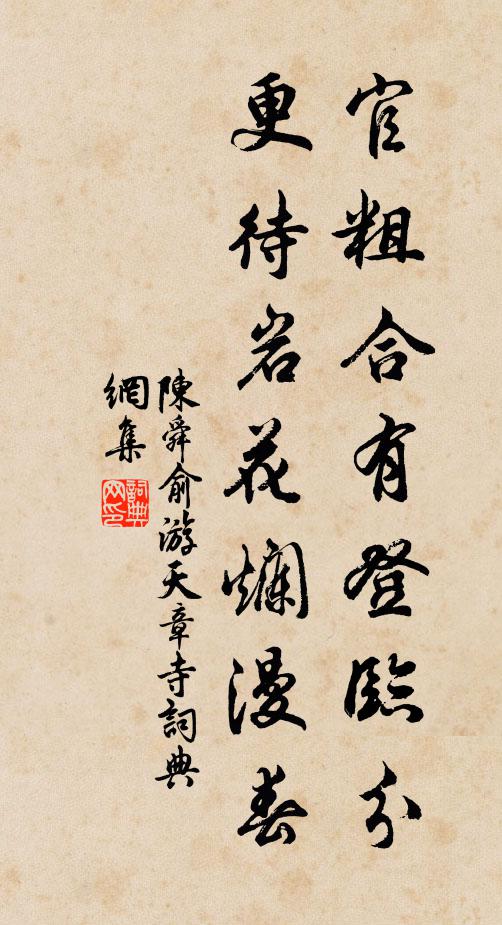 官粗合有登臨分
更待岩花爛漫春
陳舜俞游天章寺詞典
網集
詞典
网印